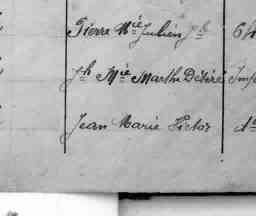 Pierre Mie Julien Jh 64
Jh Mie Marthe Désiré Imp
Jean Marie Victor